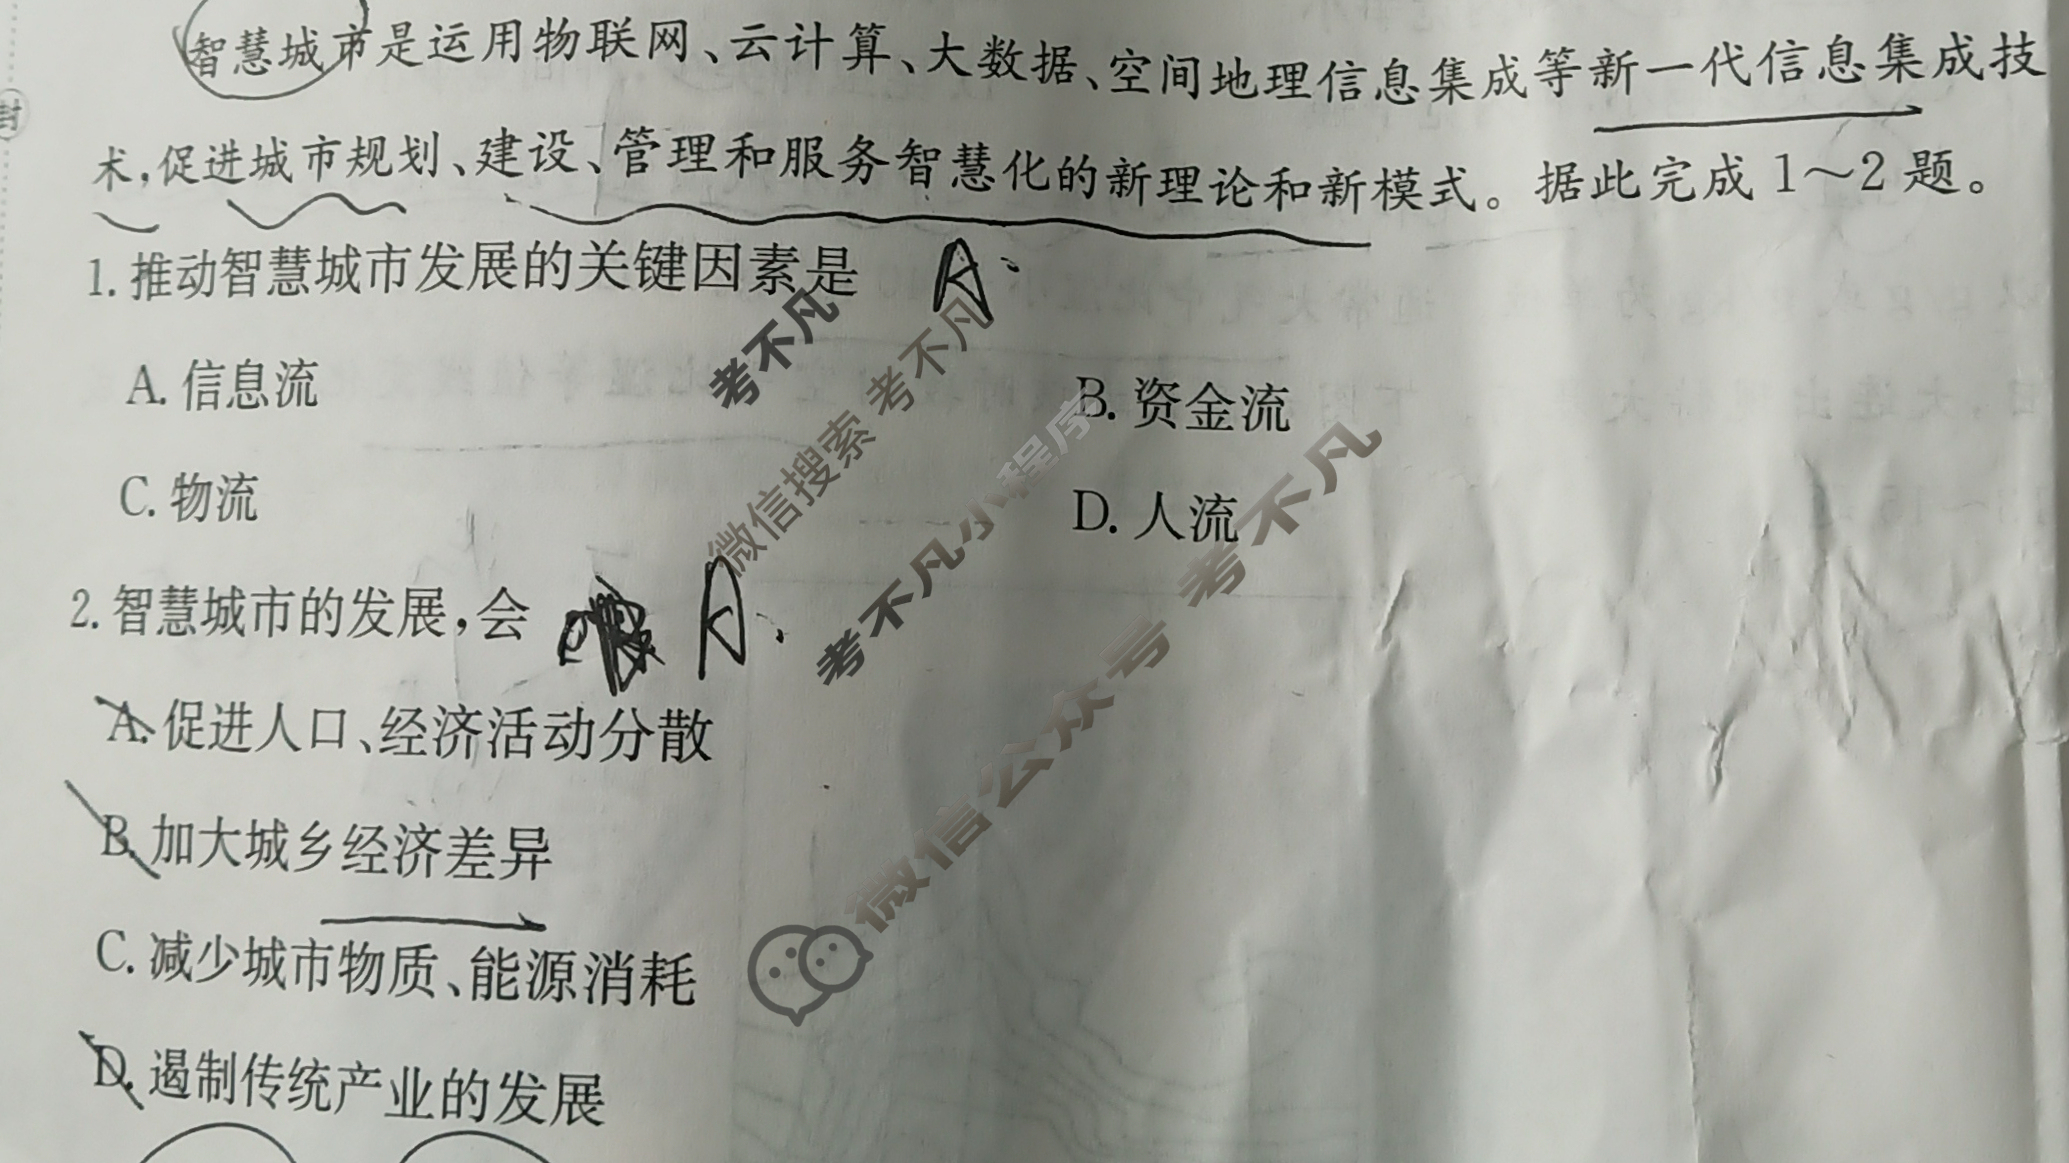 智慧城市是运用物联网、云计算、大数据、空间地理信息集成等新一代信息集成技
术,促进城市规划、建设、管理和服务智慧化的新理论和新模式。据此完成1～2题。
封
1.推动智慧城市发展的关键因素是 A.
A.信息流
B.资金流
C.物流
D.人流
2.智慧城市的发展,会 A.
A.促进人口、经济活动分散
B.加大城乡经济差异
C.减少城市物质、能源消耗
D.遏制传统产业的发展
考不凡
微信搜索 考不凡
考不凡小程序
微信公众号 考不凡